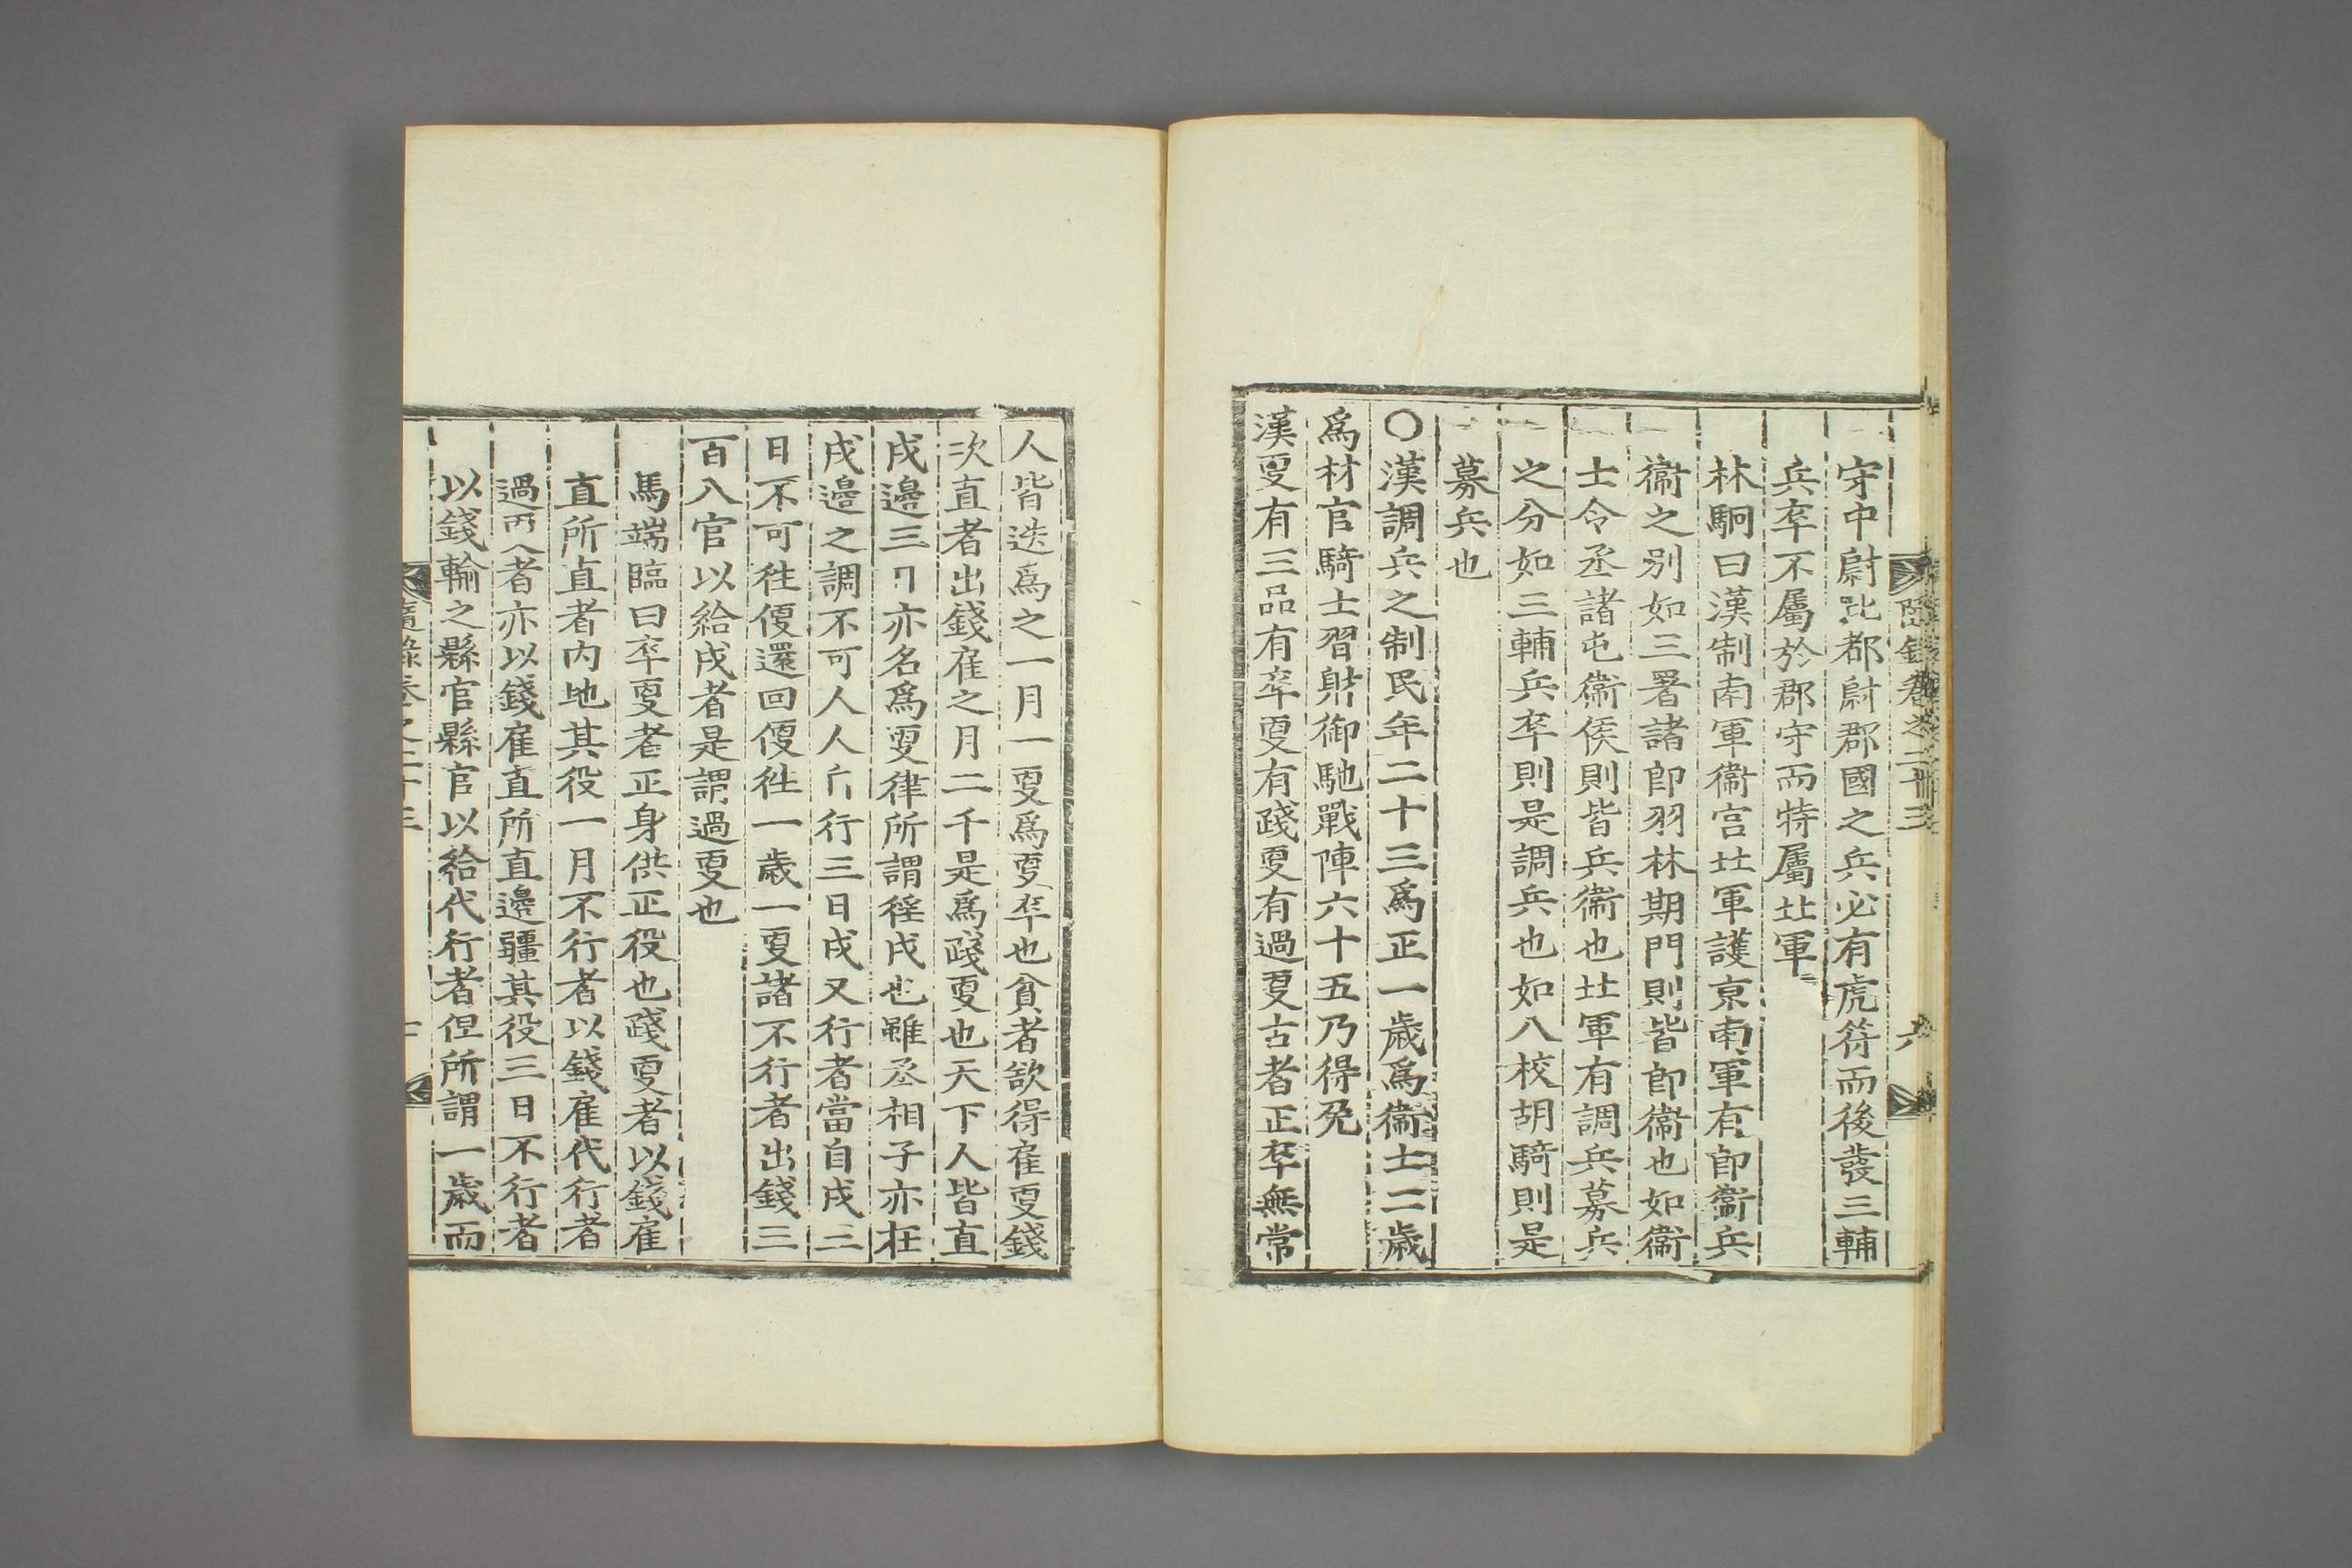 隨錄卷之二十三
六
守中尉比都尉郡國之兵必有虎符而後發三輔
兵卒不屬於郡守而特屬北軍
林駉曰漢制南軍衛宮北軍護京南軍有郎衛兵
衛之別如三署諸郎羽林期門則皆郎衛也如衛
士令丞諸屯衛侯則皆兵衛也北軍有調兵募兵
之分如三輔兵卒則是調兵也如八校胡騎則是
募兵也
○漢調兵之制民年二十三爲正一歲爲衛士二歲
爲材官騎士習射御馳戰陣六十五乃得免
漢更有三品有卒更有踐更有過更古者正卒無常
人皆迭爲之一月一更爲更卒也貧者欲得雇更錢
次直者出錢雇之月二千是爲踐更也天下人皆直
戍邊三日亦名爲更律所謂徭戍也雖丞相子亦在
戍邊之調不可人人行三日戍又行者當自戍三
日不可徃便還回便徃一歲一更諸不行者出錢三
百入官以給戍者是謂過更也
馬端臨曰卒更者正身供正役也踐更者以錢雇
直所直者內地其役一月不行者以錢雇代行者
過更者亦以錢雇直所直邊疆其役三日不行者
以錢輸之縣官縣官以給代行者但所謂一歲而
隨錄卷之二十三